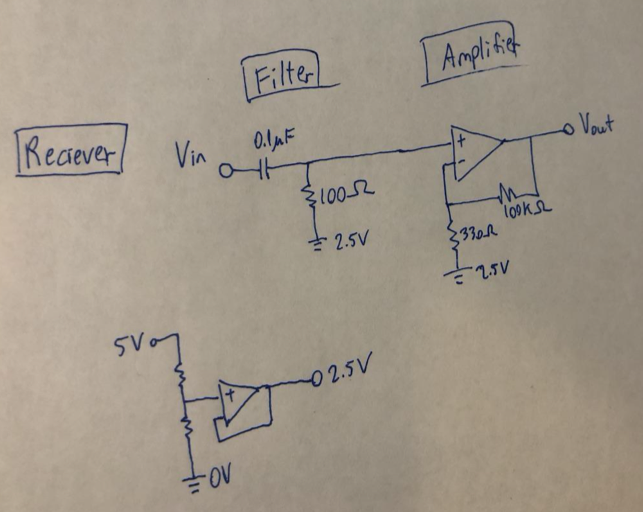 Filter
Amplifier
Reciever
Vin
0.1μF
+
-
Vout
100Ω
2.5V
100KΩ
330Ω
2.5V
5V
+
2.5V
0V